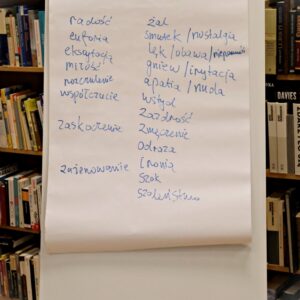 radość
euforia
ekscytacja
miłość
rozczulenie
współczucie
zaskoczenie
znienawidzenie
żal
smutek/nostalgia
lęk/obawa/niepewność
gniew/irytacja
apatia/nuda
wstyd
zazdrość
zmęczenie
odraza
ironia
szok
szaleństwo
DAVIES